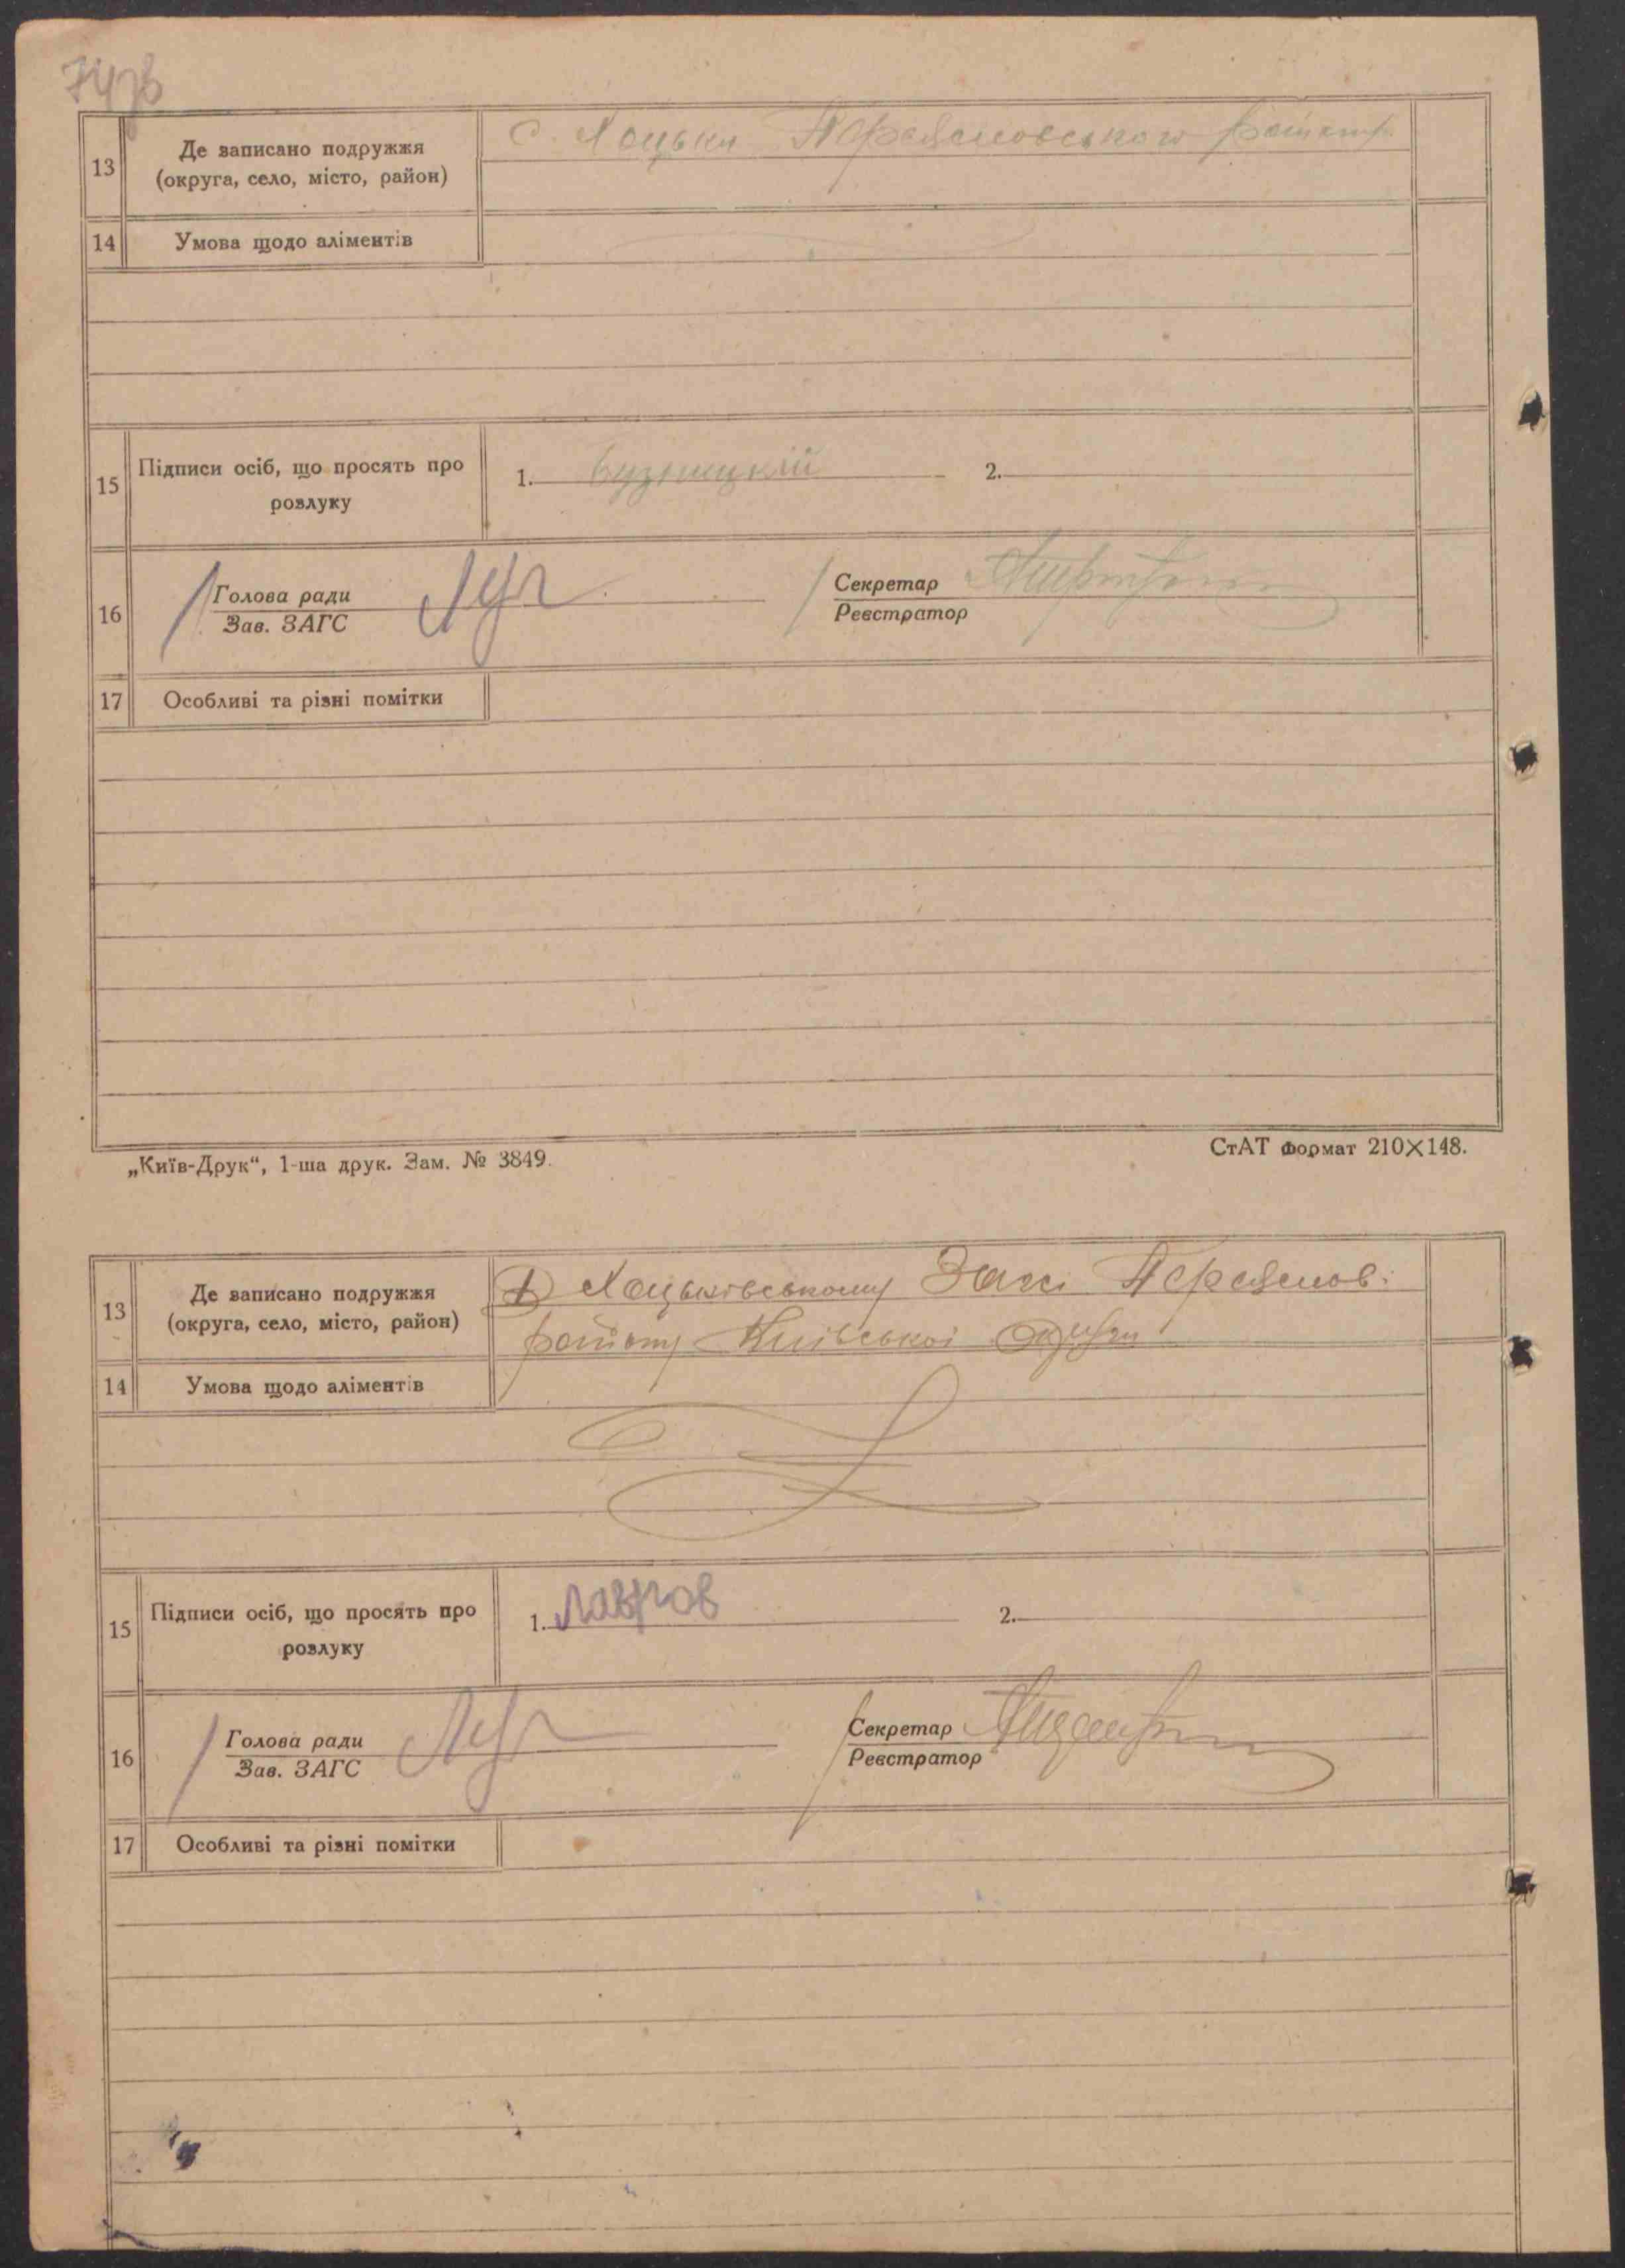 74зв
13 Де записано подружжя (округа, село, місто, район) с. Хоцьки Переяславського району
14 Умова щодо аліментів
15 Підписи осіб, що просять про розлуку 1. Бузницкій 2.
16 Голова ради Секретар
Зав. ЗАГС Реєстратор
17 Особливі та різні помітки
„Київ-Друк“, 1-ша друк. Зам. № 3849.
СтАТ формат 210×148.
13 Де записано подружжя (округа, село, місто, район) В Хоцьківському Загсі Переяслові
району Київської округи
14 Умова щодо аліментів
15 Підписи осіб, що просять про розлуку 1. Лавров 2.
16 Голова ради Секретар
Зав. ЗАГС Реєстратор
17 Особливі та різні помітки